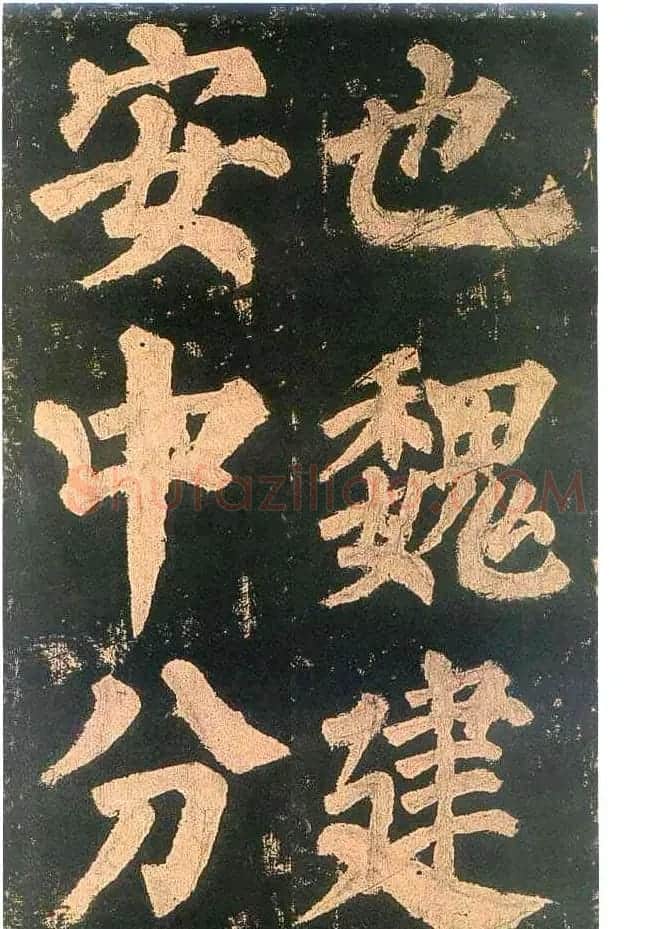 也魏建
安中分
shufaziliao.COM